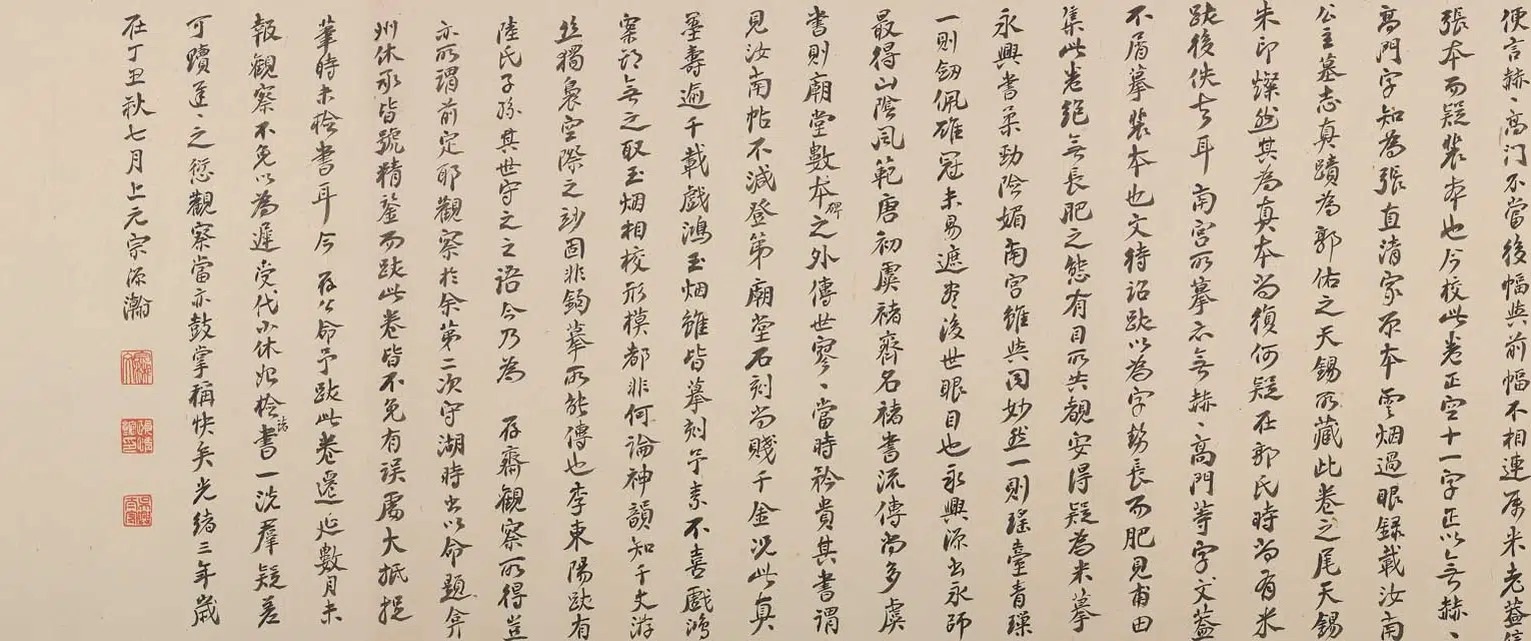 便言赫〻高门不當後幅與前幅不相連属米老蓋
張本而疑裴本也今校此卷正空十一字正以無赫
高門字知為張直清家原本雲烟過眼録載汝南
公主墓志真蹟為郭佑之天錫所藏此卷之尾天錫
朱印燦然其為真本尚復何疑在郭氏時尚有米
跋後佚去耳南宫所摹亦無赫〻高門等字文蓋
不屑摹裴本也文待詔跋以為字勢長而肥見者由
集此卷絕無長肥之態有目所共覩安得疑為米摹
永興書柔勁陰媚南宫雖與同妙然一則瑤臺青璅
一則劒佩雄冠未易遮盡後世眼目也永興源出永師
最得山陰風範唐初虞褚齊名褚書流傳尚多虞
書則廟堂數本碑之外傳世寥〻當時矜貴其書謂
見汝南帖不減登第廟堂石刻尚賤千金況此真
墨壽逾千載戲鴻玉烟雖皆摹刻予素不喜戲鴻
案頭無之取玉烟相校形模都非何論神韻知千文游
絲獨裊空際之玅固非鉤摹所能傳也李東陽跋有
陸氏子孫其世守之之語今乃為 存齋觀察所得豈
亦所謂前定耶觀察於余第二次守湖時出以命題弇
州休承皆號精鉴而跋此卷皆不免有誤屬大抵捉
筆時未檢書耳今 存公命予跋此卷遷延數月未
報觀察不免以為遲受代小休始檢諸書一洗羣疑差
可贖遲〻之愆觀察當亦鼓掌稱快矣光緒三年歲
在丁丑秋七月上元宗源瀚